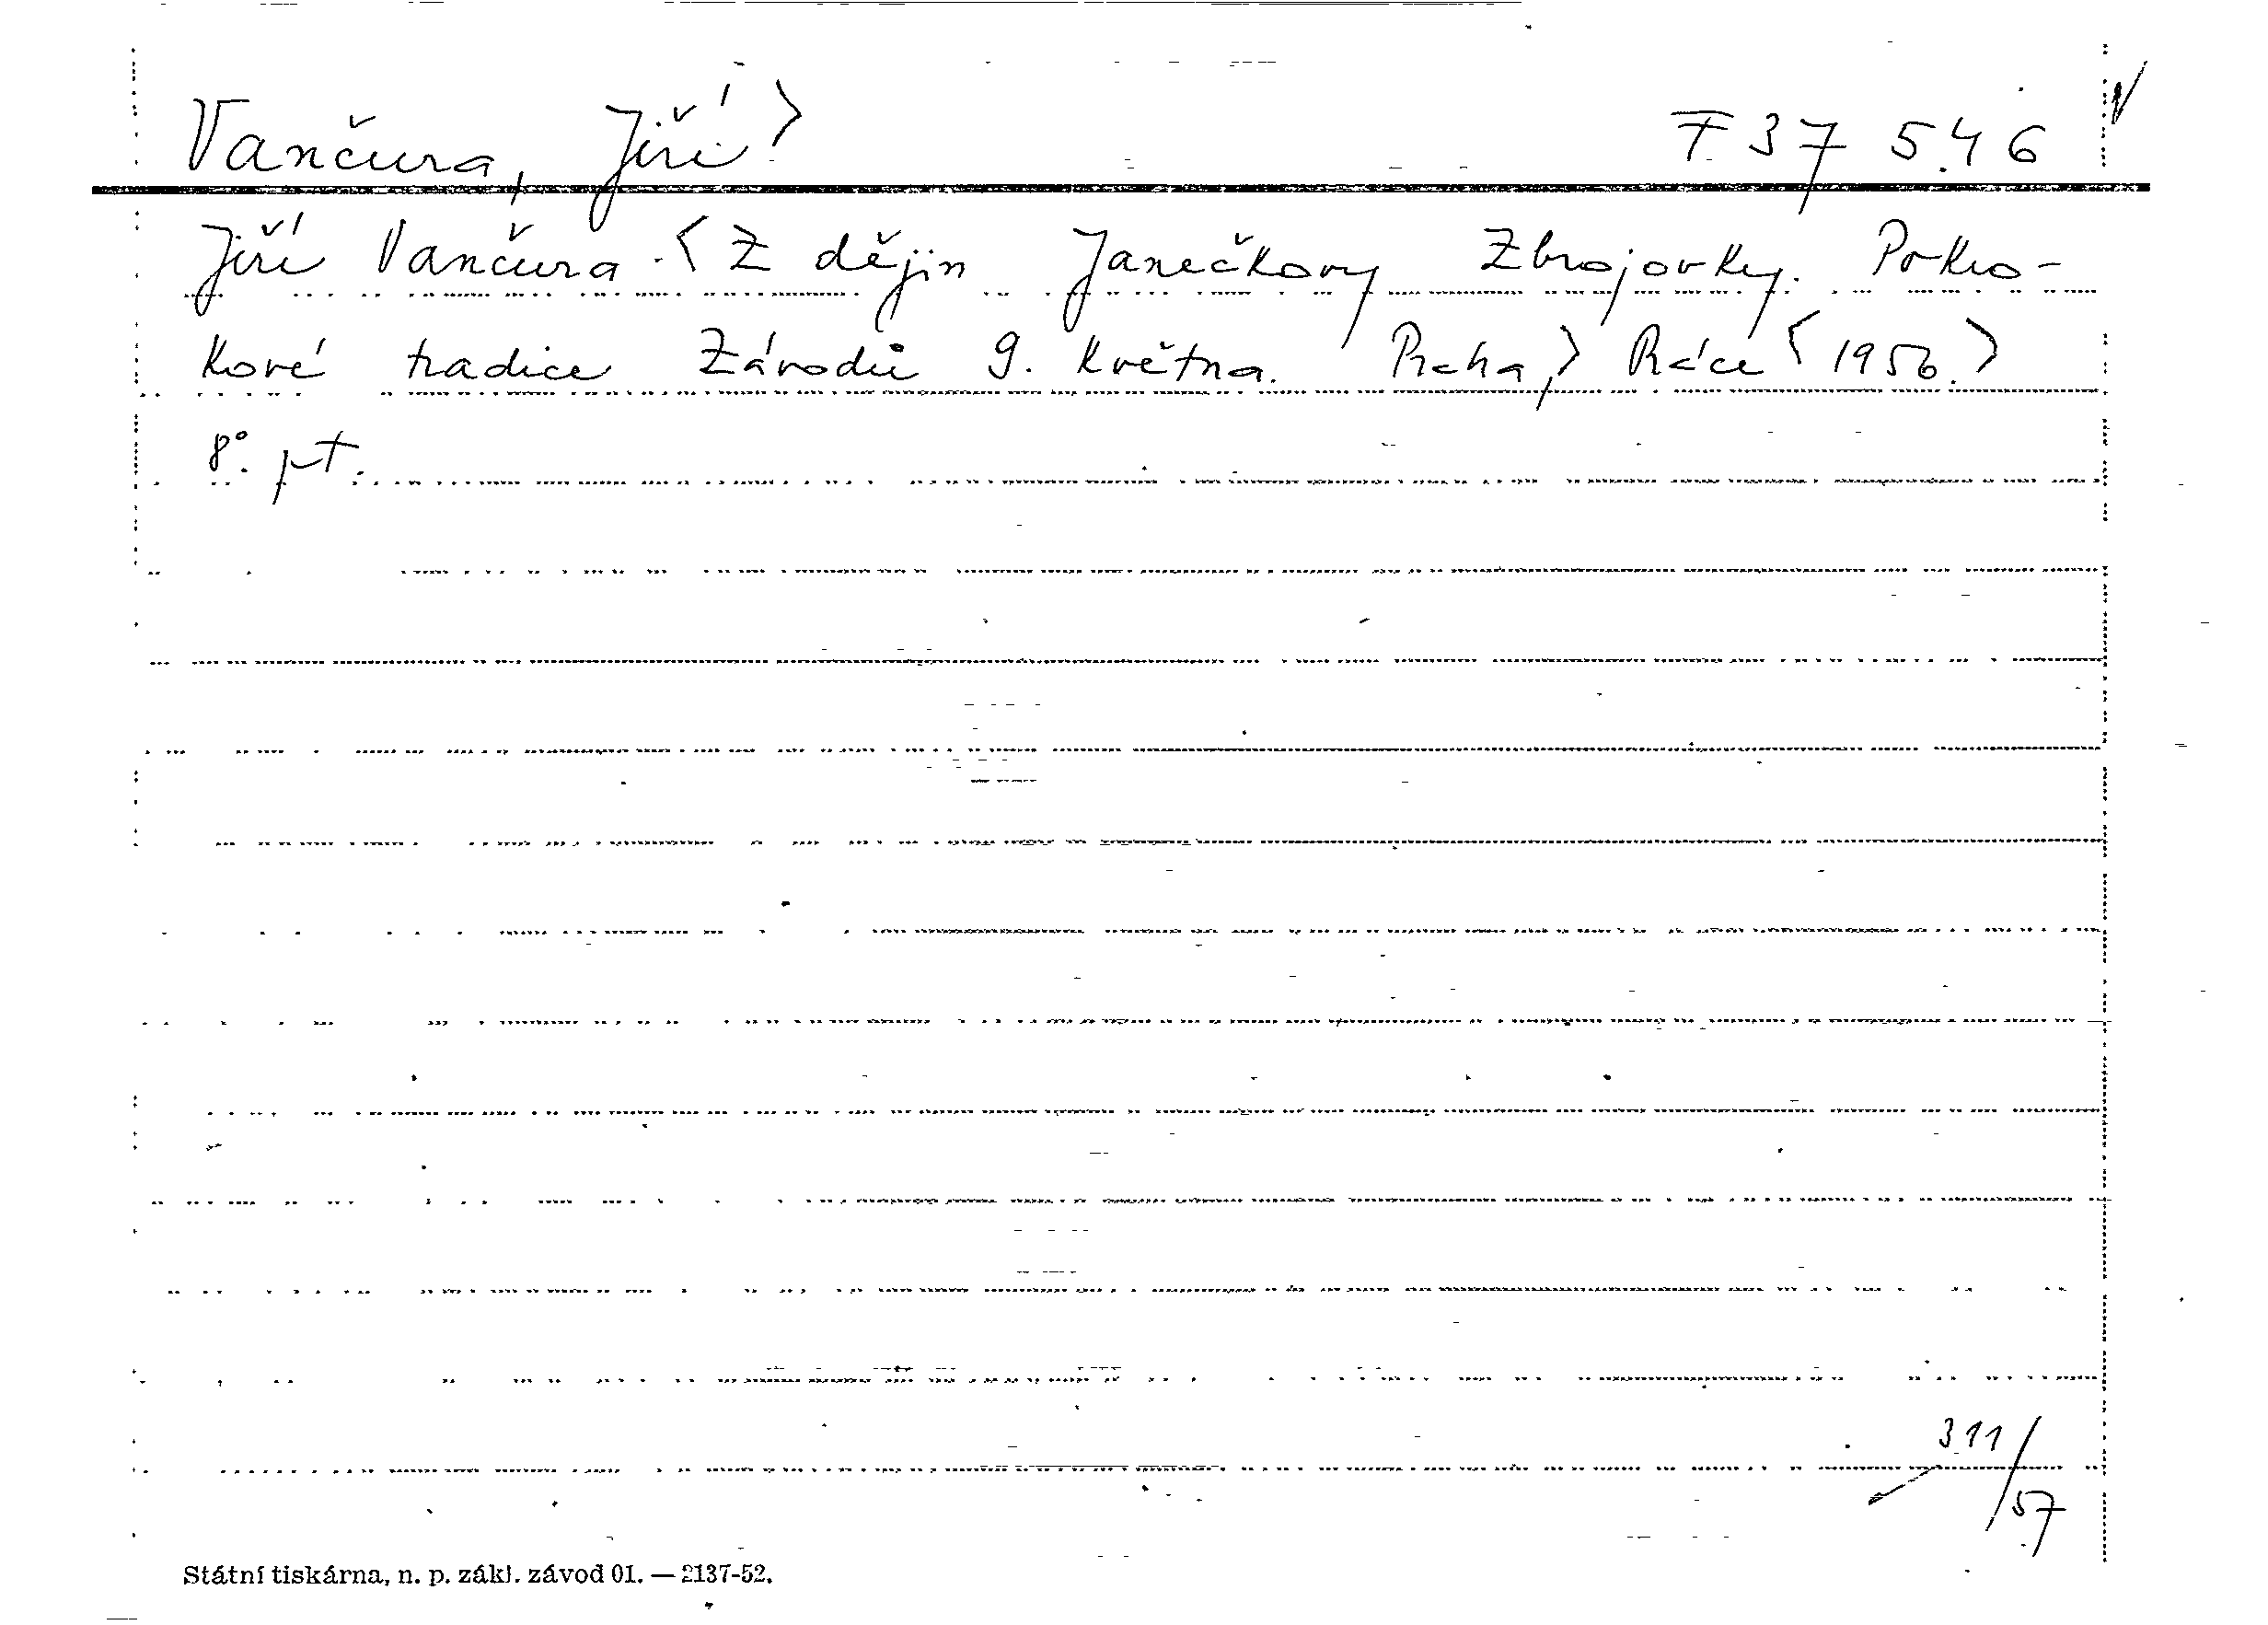 Vančura, Jiří> F 37 546
Jiří Vančura. <Z dějin Janečkovy Zbrojovky. Pokro-
kové tradice Závodů 9. května. Praha,> Práce <1956.>
8°. pt.
311/57
Státní tiskárna, n. p. zákl. závod 01. — 2137-52.